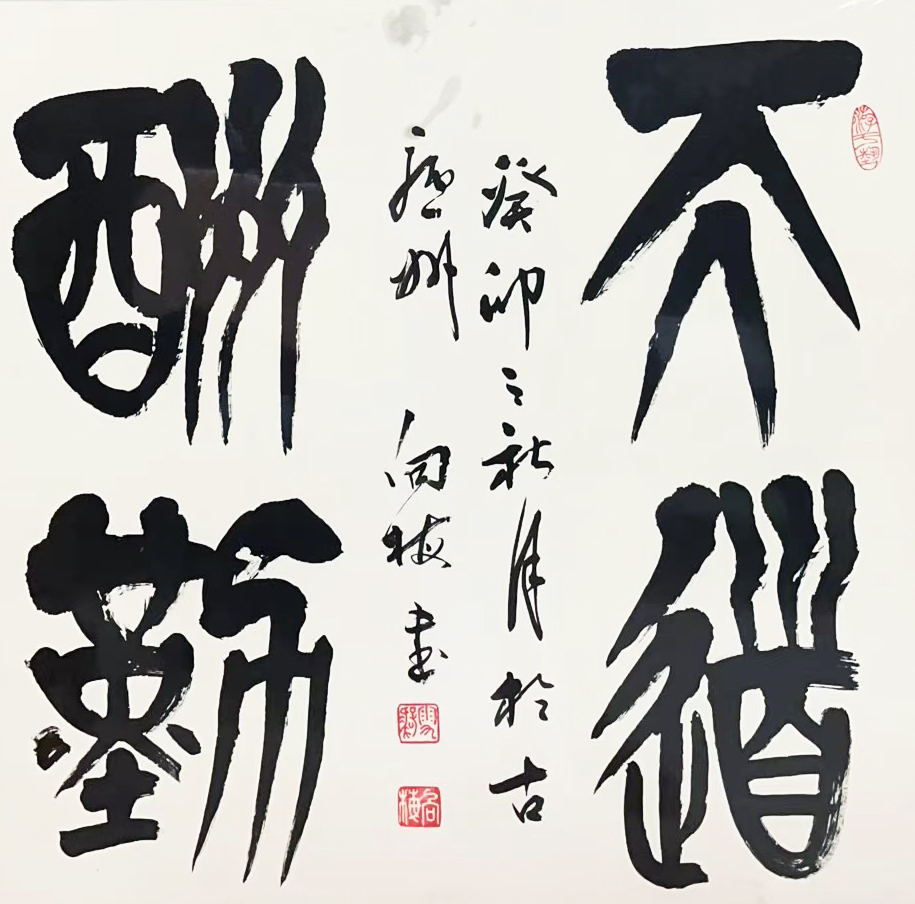 天道
酬勤
癸卯之秋月於古
州 向梅書